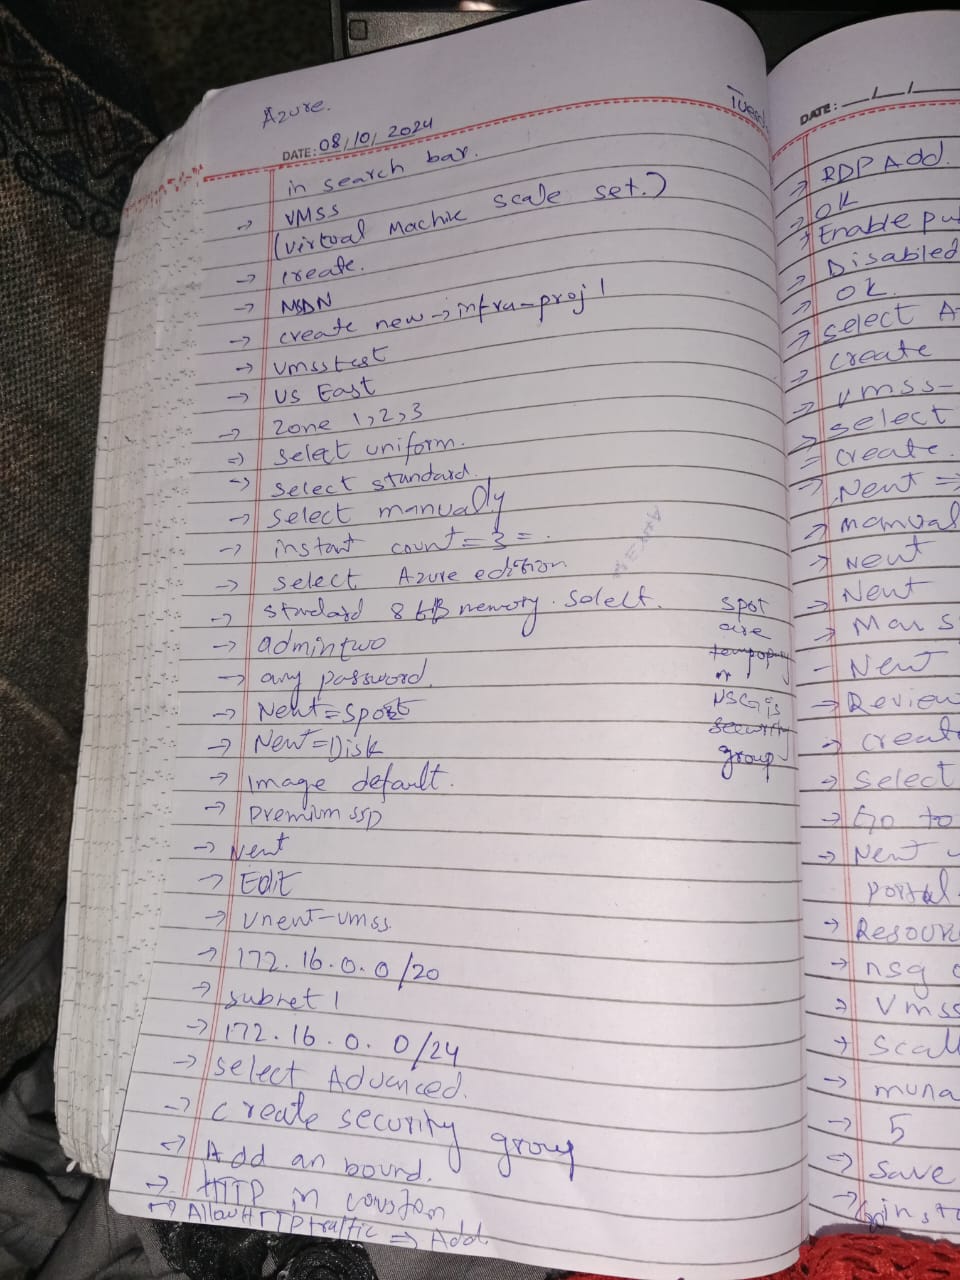 Azure.
DATE: 08/10/2024
in search bar.
→ VMSS
(virtual Machine scale set.)
→ create.
→ MSDN
→ create new → infra-proj1
→ vmsstest
→ US East
→ Zone 1,2,3
→ select uniform.
→ select standard.
→ select manually
→ instant count = 3 =.
→ select Azure edition
→ standard 8 GB memory. Select.
→ admintwo
→ any password.
→ Next = Spot
→ Next = Disk
→ Image default.
→ premium SSD
→ Next
→ Edit
→ vnet-vmss.
→ 172.16.0.0/20
→ subnet 1
→ 172.16.0.0/24
→ select Advanced.
→ create security group
→ Add an bound.
→ HTTP in
→ AllowHTTPtraffic ⇒ Add.
spot
are
or
NSG is
security
group
Tues
DATE: __/__/
→ RDP Add.
→ OK
→ Enable pu
→ Disabled
→ OK.
→ select A
→ create
→ vmss-
→ select
= create.
→ Next ⇒
→ manual
→ Next
→ Next
→ Man s
- Next
→ Review
→ create
→ Select
→ Go to
→ Next
portal.
→ Resour
→ nsg
→ vmss
→ Scal
→ mana
→ 5
→ Save